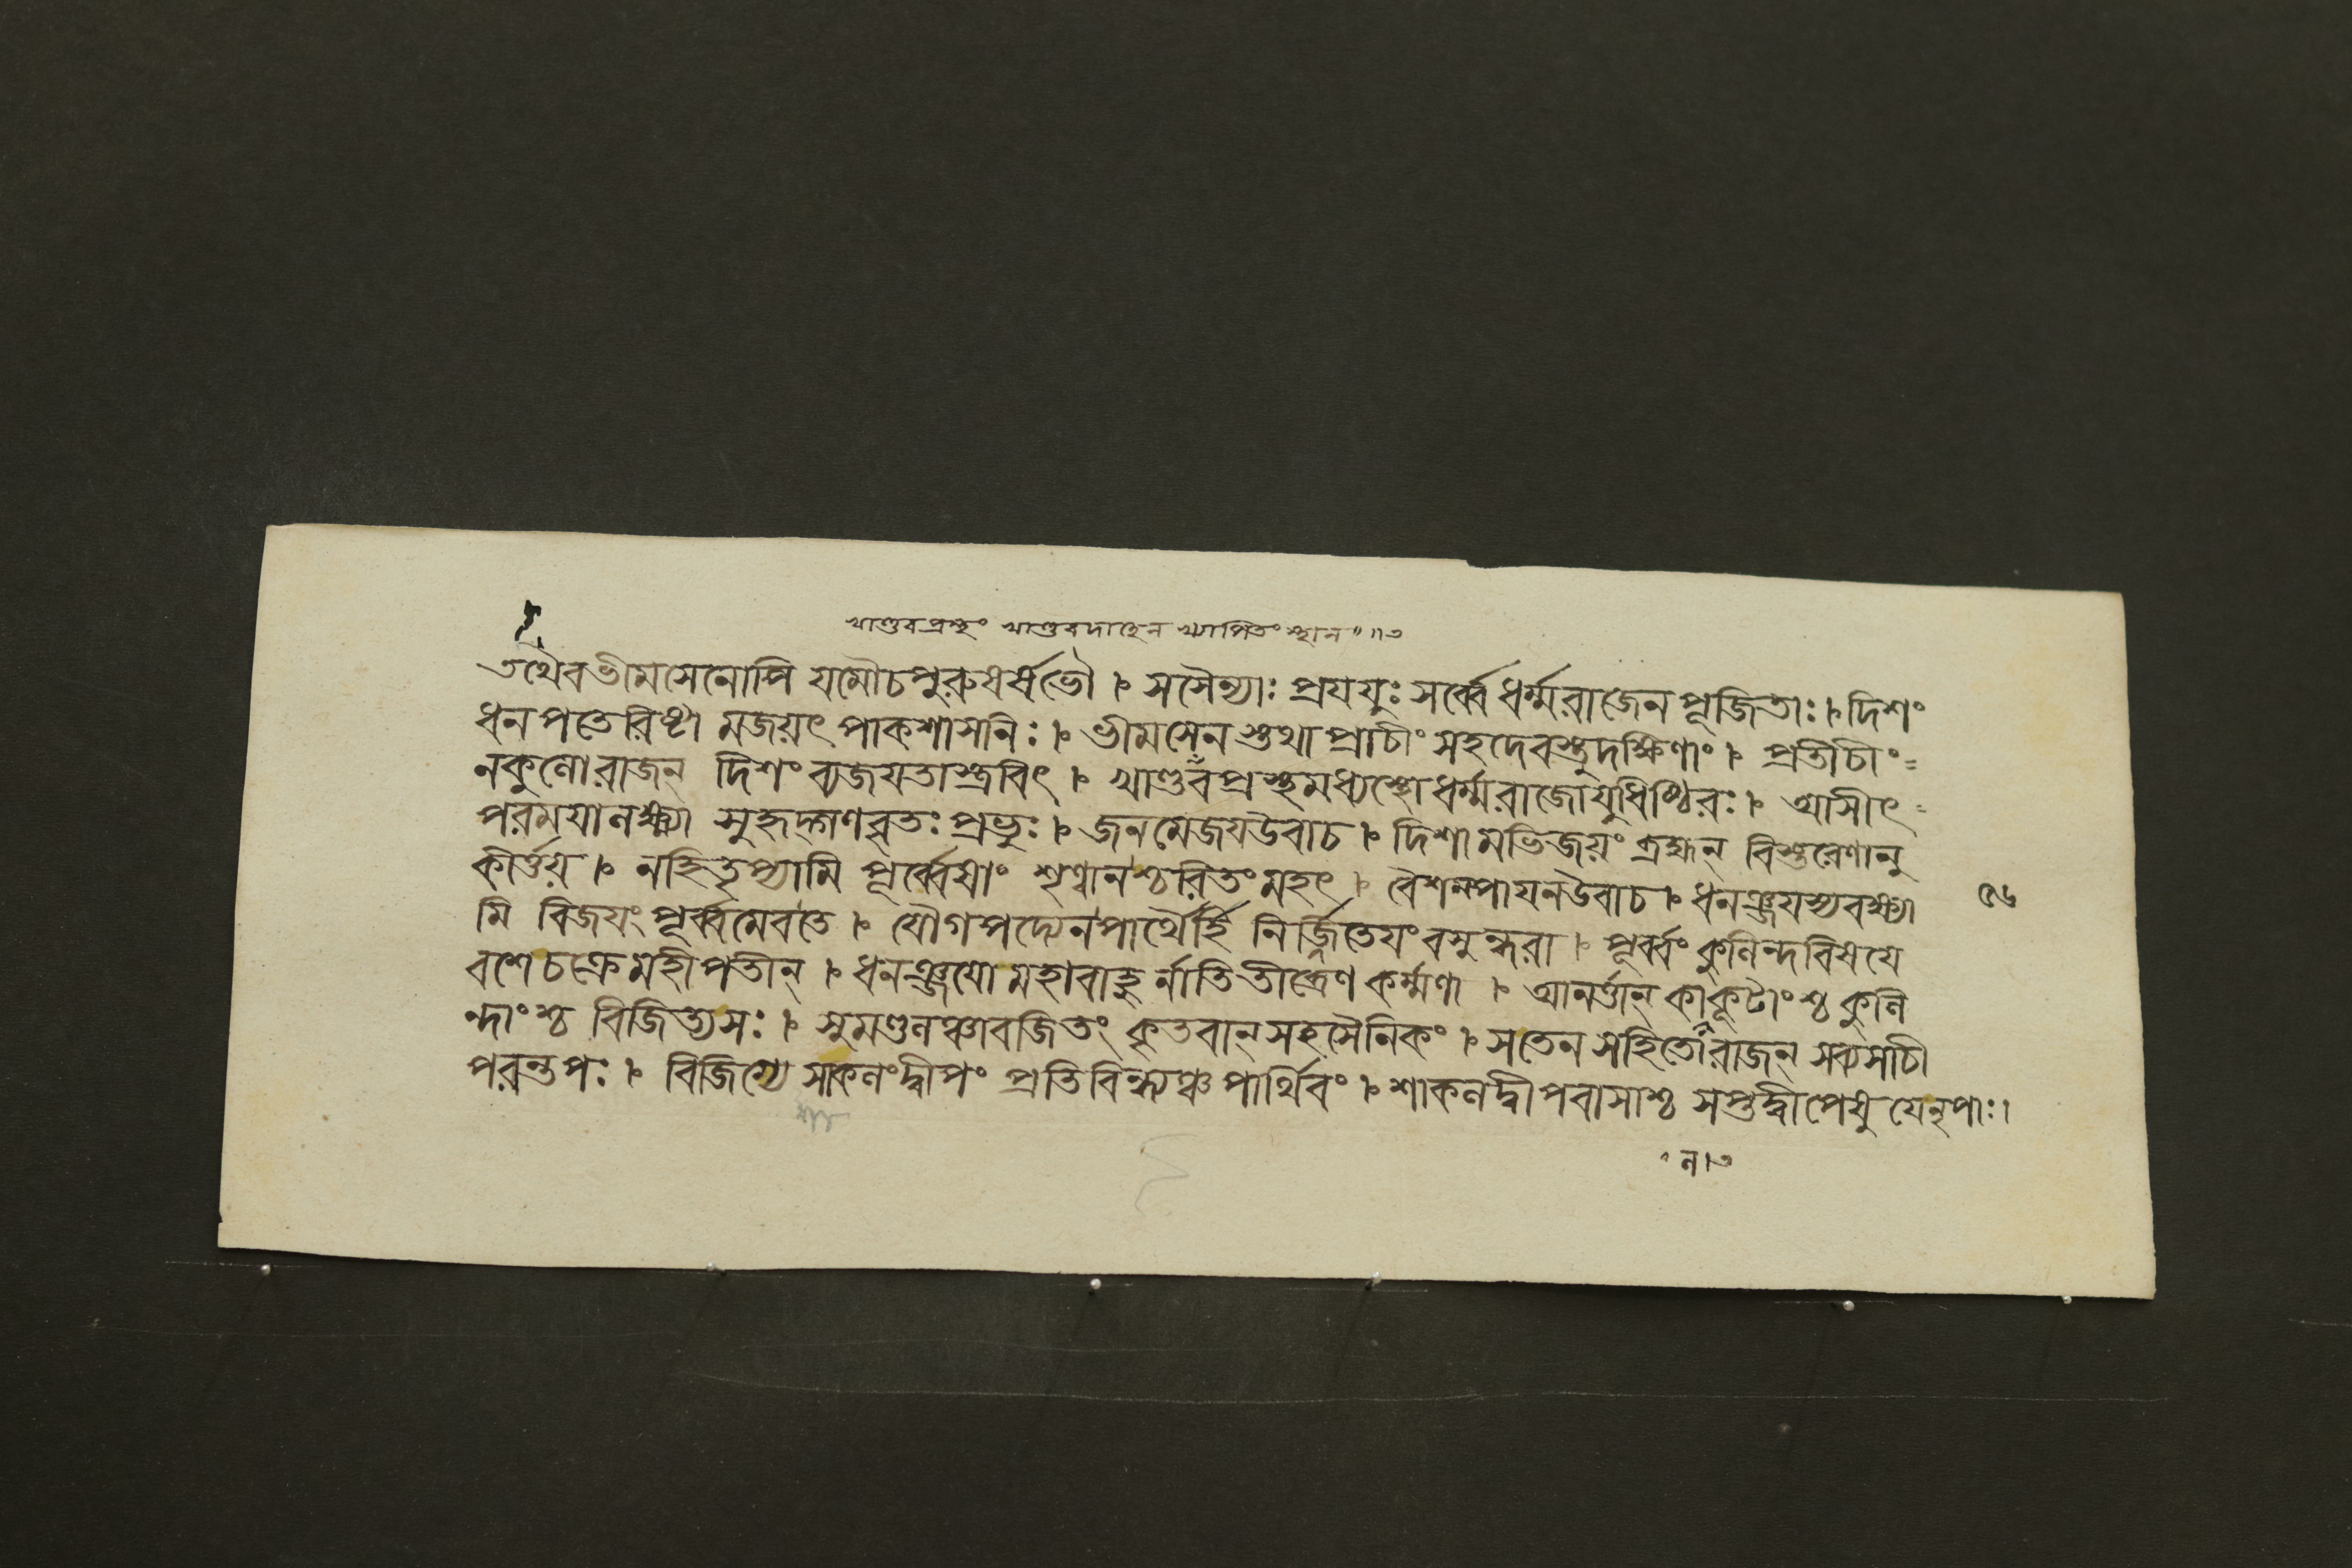 খাণ্ডবপ্রস্থং খাণ্ডবদাহেন খ্যাপিতং স্থান॥৩
তথৈবভীমসেনোপি যমৌচপুরুষর্ষভৌ । সসৈন্যাঃ প্রযযুঃ সর্ব্বে ধর্ম্মরাজেন পূজিতাঃ । দিশং
ধনপতেরিষ্টা মজয়ৎ পাকশাসনিঃ । ভীমসেন স্তথা প্রাচীং সহদেবস্তুদক্ষিণাং । প্রতীচীং
নকুলোরাজন্ দিশং ব্যজযতাস্ত্রবিৎ । খাণ্ডবপ্রস্থমধ্যস্থোধর্ম্মরাজোযুধিষ্ঠিরঃ । আসীৎ
পরমযালক্ষ্ম্যা সুহৃদ্গণবৃতঃ প্রভুঃ । জনমেজযউবাচ । দিশামভিজয়ং ব্রহ্মন্ বিস্তরেণানু
কীর্ত্তয় । নহিতৃপ্যামি পূর্ব্বেষাং শৃণ্বানশ্চরিতং মহৎ । বৈশম্পাযনউবাচ । ধনঞ্জযস্যবক্ষ্যা
৫৬
মি বিজযং পূর্ব্বমেবতে । যৌগপদ্যেনপার্থৈর্হি নির্জ্জিতেযং বসুন্ধরা । পূর্ব্বং কুলিন্দবিষযে
বশেচক্রেমহীপতীন্ । ধনঞ্জযো মহাবাহু র্নাতিতীব্রেণ কর্ম্মণা । আনর্ত্তান্ কালকূটাংশ্চ কুলি
ন্দাংশ্চ বিজিত্যসঃ । সুমণ্ডলঞ্চাবজিতং কৃতবান্ সহসৈনিকং । সতেন সহিতোরাজন্ সব্যসাচী
পরন্তপঃ । বিজিগ্যে সাকলংদ্বীপং প্রতিবিন্ধ্যঞ্চ পার্থিবং । শাকলদ্বীপবাসাশ্চ সপ্তদ্বীপেষু যেনৃপাঃ।
ল।৩